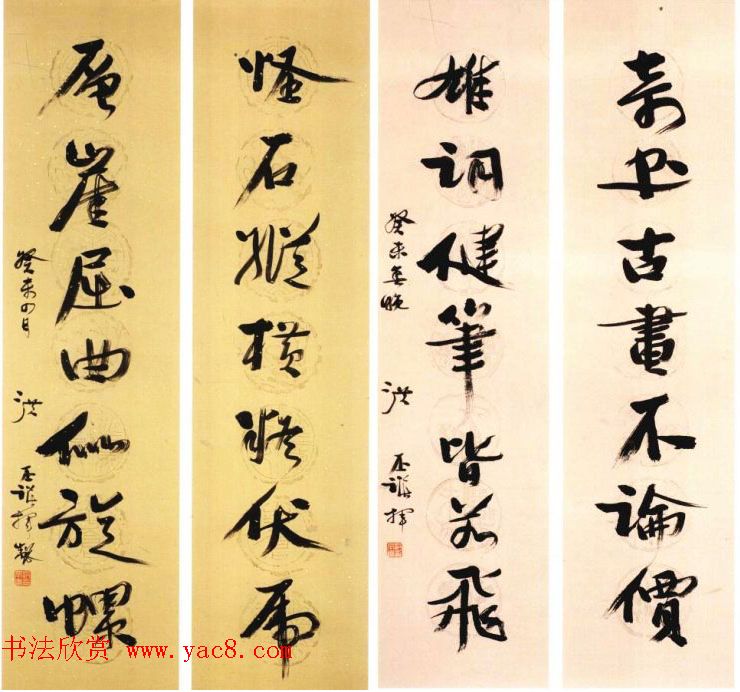 奇书古畫不論價
雄詞健筆皆若飛
癸未春晚 洪丕謨 揮
怪石縱橫疑伏虎
層崖屈曲似旋螺
癸未四月 洪丕謨揮
书法欣赏 www.yac8.com